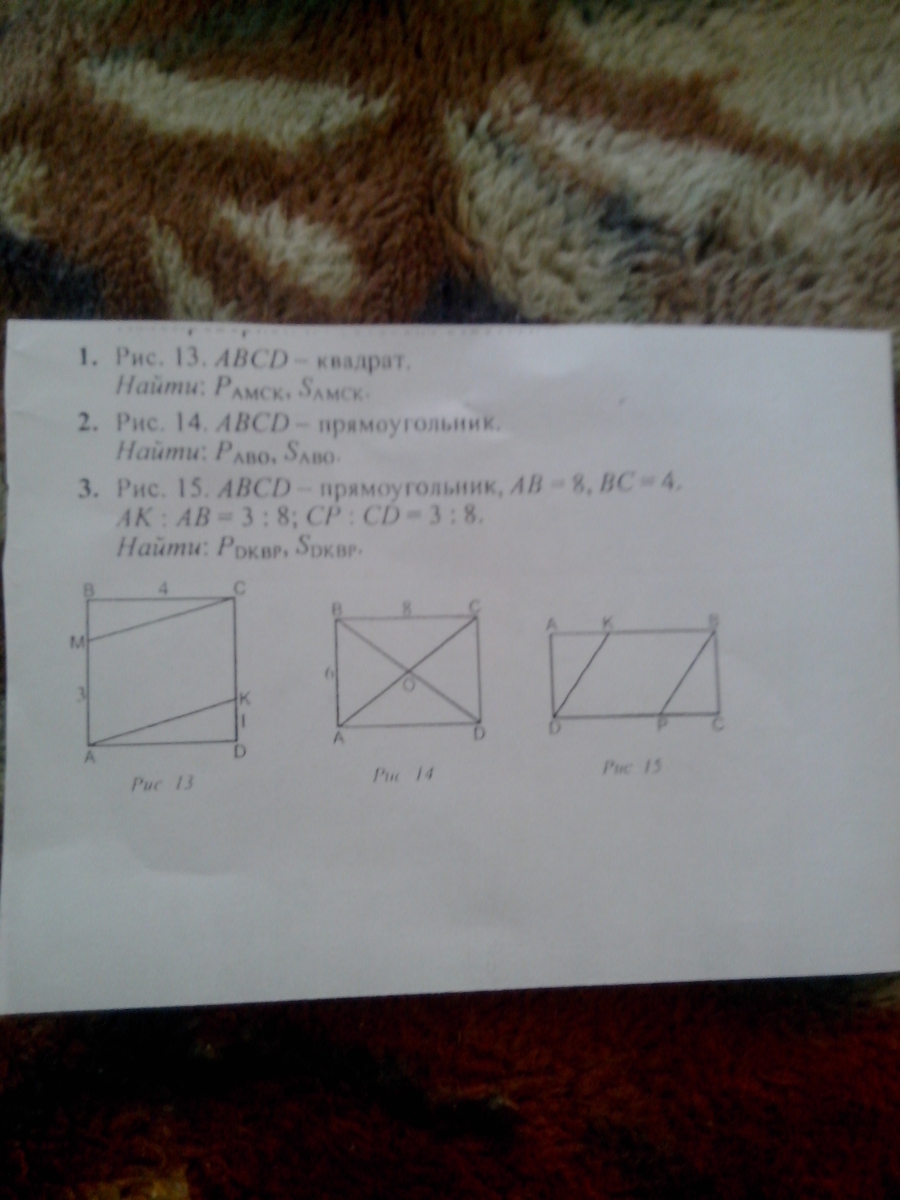 1. Рис. 13. ABCD – квадрат.
Найти: PAMCK, SAMCK.
2. Рис. 14. ABCD – прямоугольник.
Найти: PABO, SABO.
3. Рис. 15. ABCD – прямоугольник, AB = 8, BC = 4.
AK : AB = 3 : 8; CP : CD = 3 : 8.
Найти: PDKBP, SDKBP.
B 4 C
M
3
K
1
A D
Рис 13
B 8 C
6
O
A D
Рис 14
A K B
D P C
Рис 15